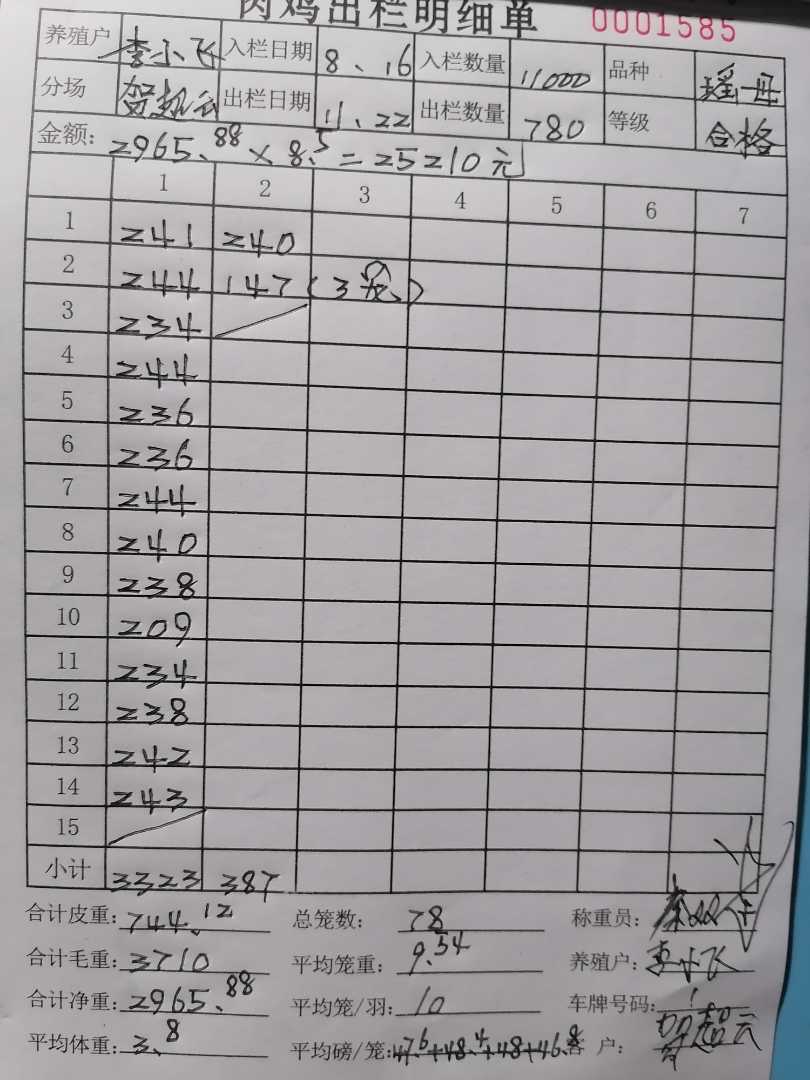 肉鸡出栏明细单 0001585
养殖户 李小飞 入栏日期 8、16 入栏数量 11000 品种 瑶母
分场 贺超云 出栏日期 11、22 出栏数量 780 等级 合格
金额: 2965.88 × 8.5 = 25210元
1 2 3 4 5 6 7
1 241 240
2 244 147 (3笼)
3 234
4 244
5 236
6 236
7 244
8 240
9 238
10 209
11 234
12 238
13 242
14 243
15
小计 3323 387
合计皮重: 744.12 总笼数: 78 称重员:
合计毛重: 3710 平均笼重: 9.54 养殖户: 李小飞
合计净重: 2965.88 平均笼/羽: 10 车牌号码:
平均体重: 3.8 平均磅/笼: 47.6+48.4+48+46.8 客户: 贺超云